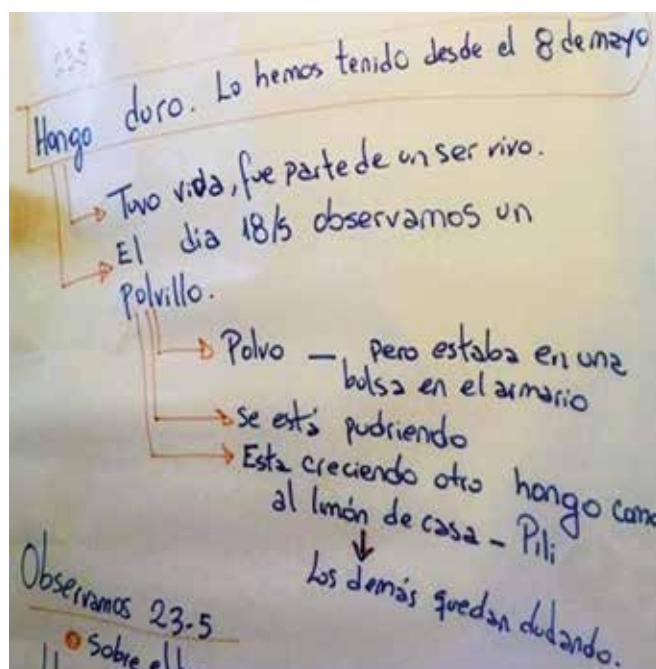 23.5
Hongo duro. Lo hemos tenido desde el 8 de mayo
Tuvo vida, fue parte de un ser vivo.
El dia 18/5 observamos un
polvillo.
Polvo — pero estaba en una
bolsa en el armario
se está pudriendo
Esta creciendo otro hongo como
al limón de casa - Pili
Los demás quedan dudando.
Observamos 23-5
Sobre el